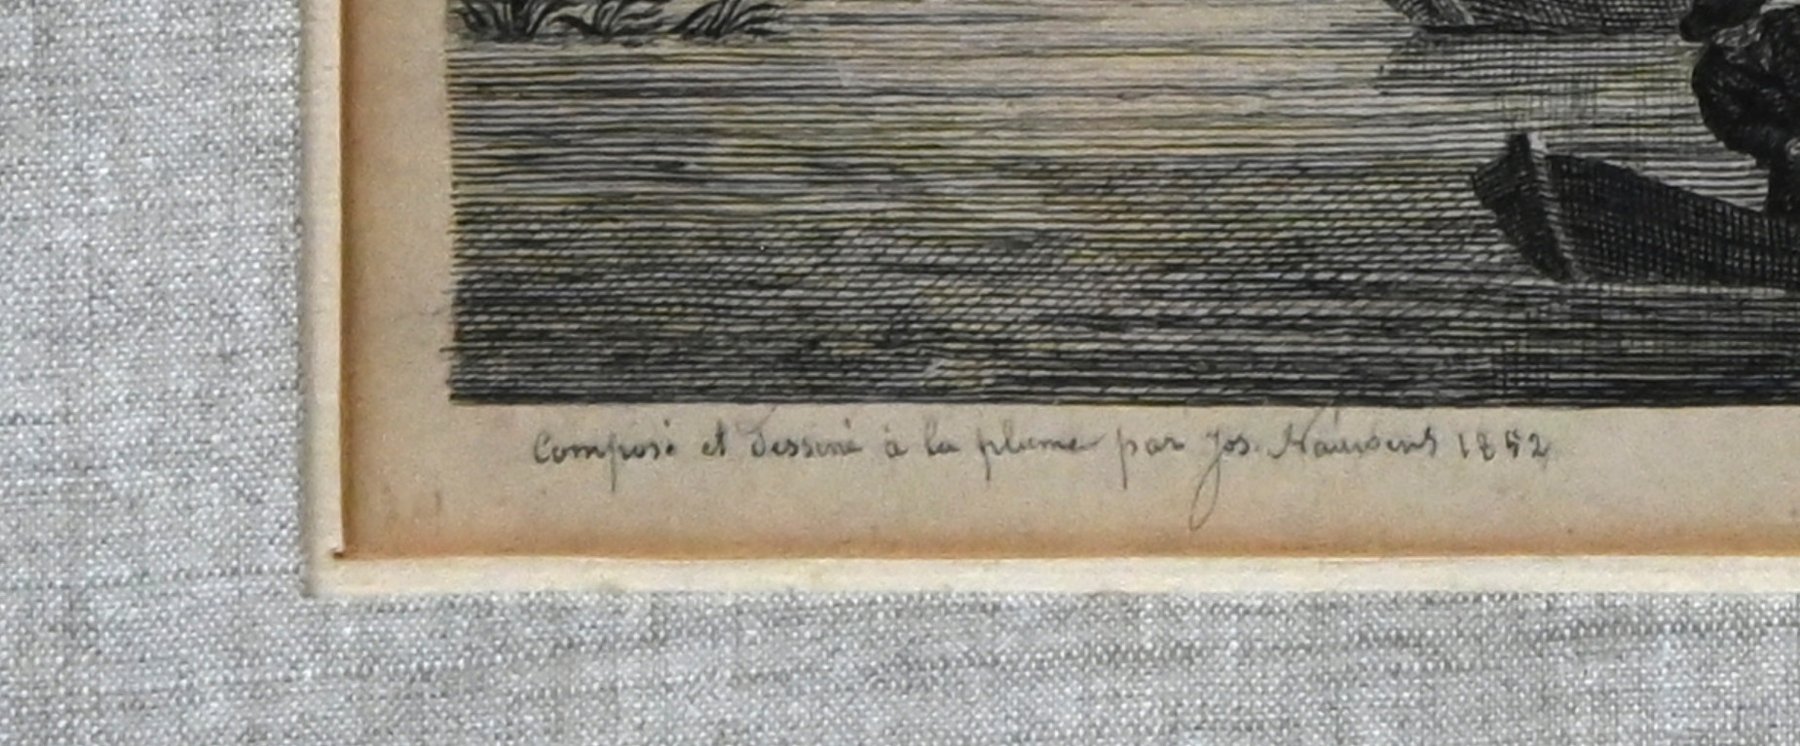 Composé et dessiné à la plume par Jos. 1852